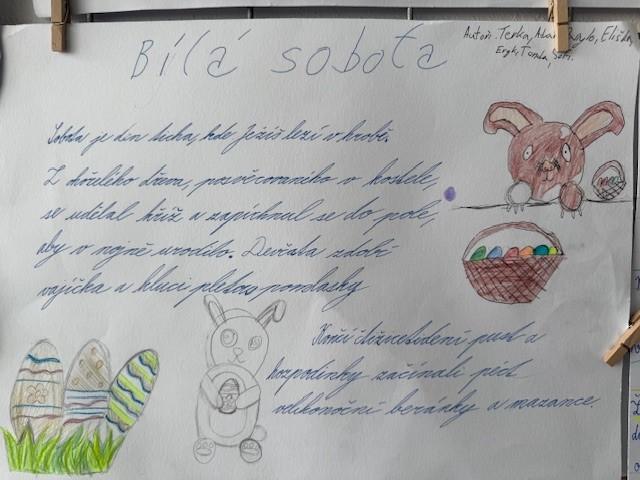 Bílá sobota
Autoři: Terka, Elišk
Sobota je den ticha, kde Ježíš leží v hrobě.
Z ohořelého dřeva, posvěcovaného v kostele,
se udělal kříž a zapíchnul se do pole,
aby v nojně urodilo. Devčata zdobí
vajíčka a kluci pletou pomlasky
Končí čtyřicetidení pust a
hospodinky začínali péct
velikonoční beránky a mazance.